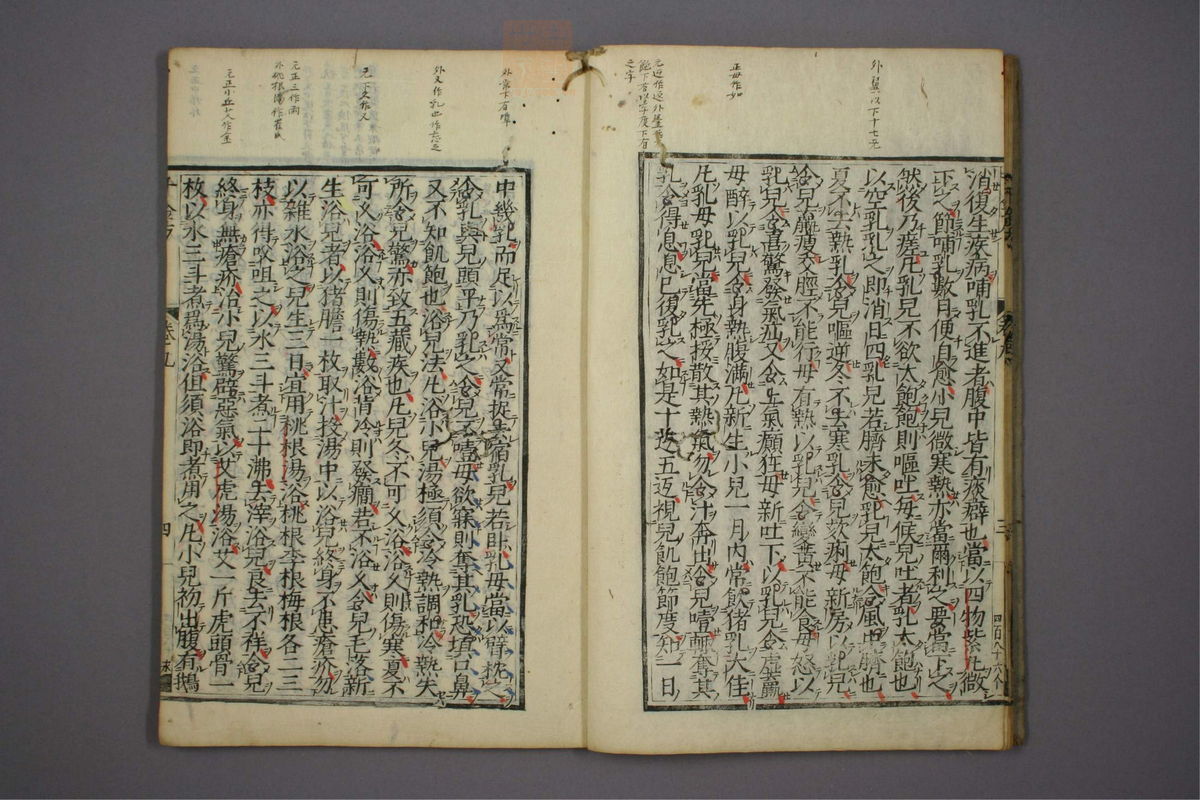 外翼以下十七无
正毋作如
消復生痰病哺乳不進者腹中皆有痰癖也當以四物紫丸微
下之節哺乳數月便自愈小兒微寒熱亦當爾利之要當下之
然後乃瘥凡乳兒不欲太飽飽則嘔吐每候兒吐者乳太飽也
以空乳乳之即消日四乳兒若臍未愈乳兒太飽令風中臍也
夏不去熱乳令兒嘔逆冬不去寒乳令兒欬痢母新房以乳兒
令兒羸瘦交脛不能行母有熱以乳兒令變黃不能食母怒以
乳兒令喜驚發氣疝又令上氣顛狂母新吐下以乳兒令虛羸
母醉以乳兒令身熱腹滿凡新生小兒一月內常飲猪乳大佳
凡乳母乳兒當先極挼散其熱氣勿令汁奔出令兒噎輒奪其
乳令得息息已復乳之如是十返五返視兒飢飽節度知一日
三
四百八十六
外常下有噀
中幾乳而足以爲常又常捉去宿乳兒若卧乳母當以臂枕之
令乳與兒頭平乃乳之令兒不噎母欲寐則奪其乳恐填口鼻
又不知飢飽也浴兒法凡浴小兒湯極須令冷熱調和冷熱失
所令兒驚亦致五藏疾也凡兒冬不可久浴浴久則傷寒夏不
可久浴浴久則傷熱數浴背冷則發癎若不浴又令兒毛落新
生浴兒者以猪膽一枚取汁投湯中以浴兒終身不患瘡疥勿
以雜水浴之兒生三日宜用桃根湯浴桃根李根梅根各二三
枝亦得㕮咀之以水三斗煮二十沸去滓浴兒良去不祥令兒
終身無瘡疥治小兒驚辟惡氣以艾虎湯浴艾一斤虎頭骨一
枚以水三斗煮爲湯浴但須浴即煮用之凡小兒初出腹有鵝
千金方
卷九
四